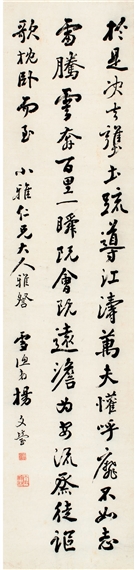 於是决壅土疏導江濤萬夫懽呼靡不如志
雷騰雲奔百里一瞬既會既遠澹為安流煑徒謳
歌枕卧而至
小雅仁兄大人雅鑒
雪漁弟楊文瑩